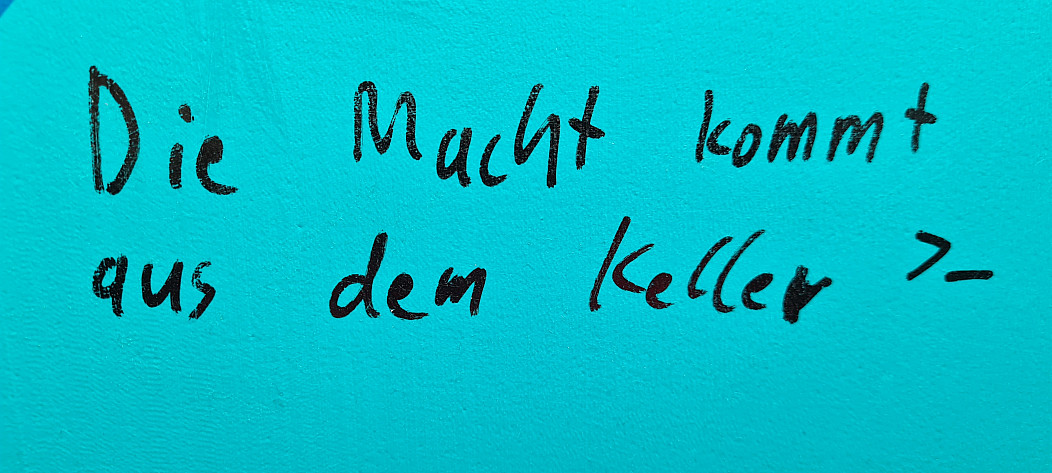 Die Macht kommt
aus dem Keller >_